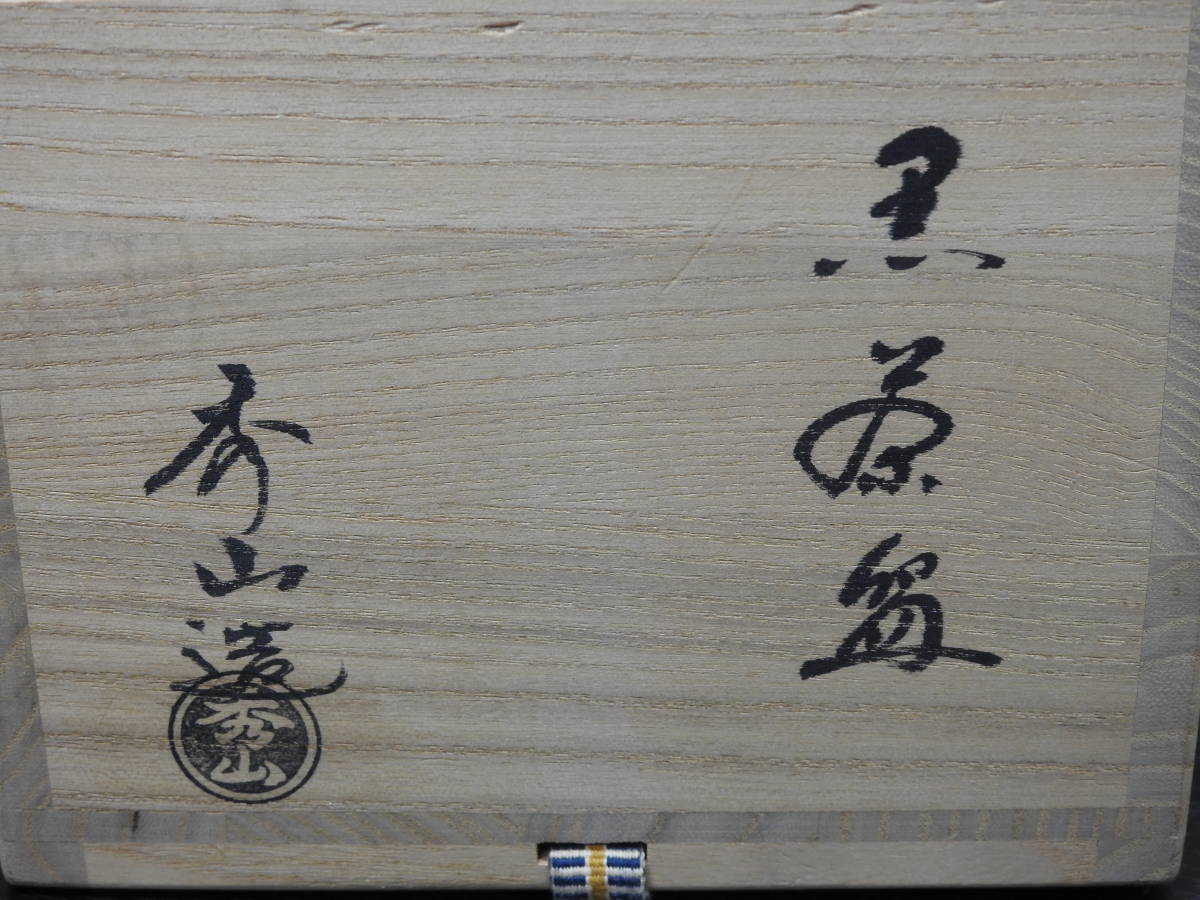 黒茶盌
秀山造
秀山